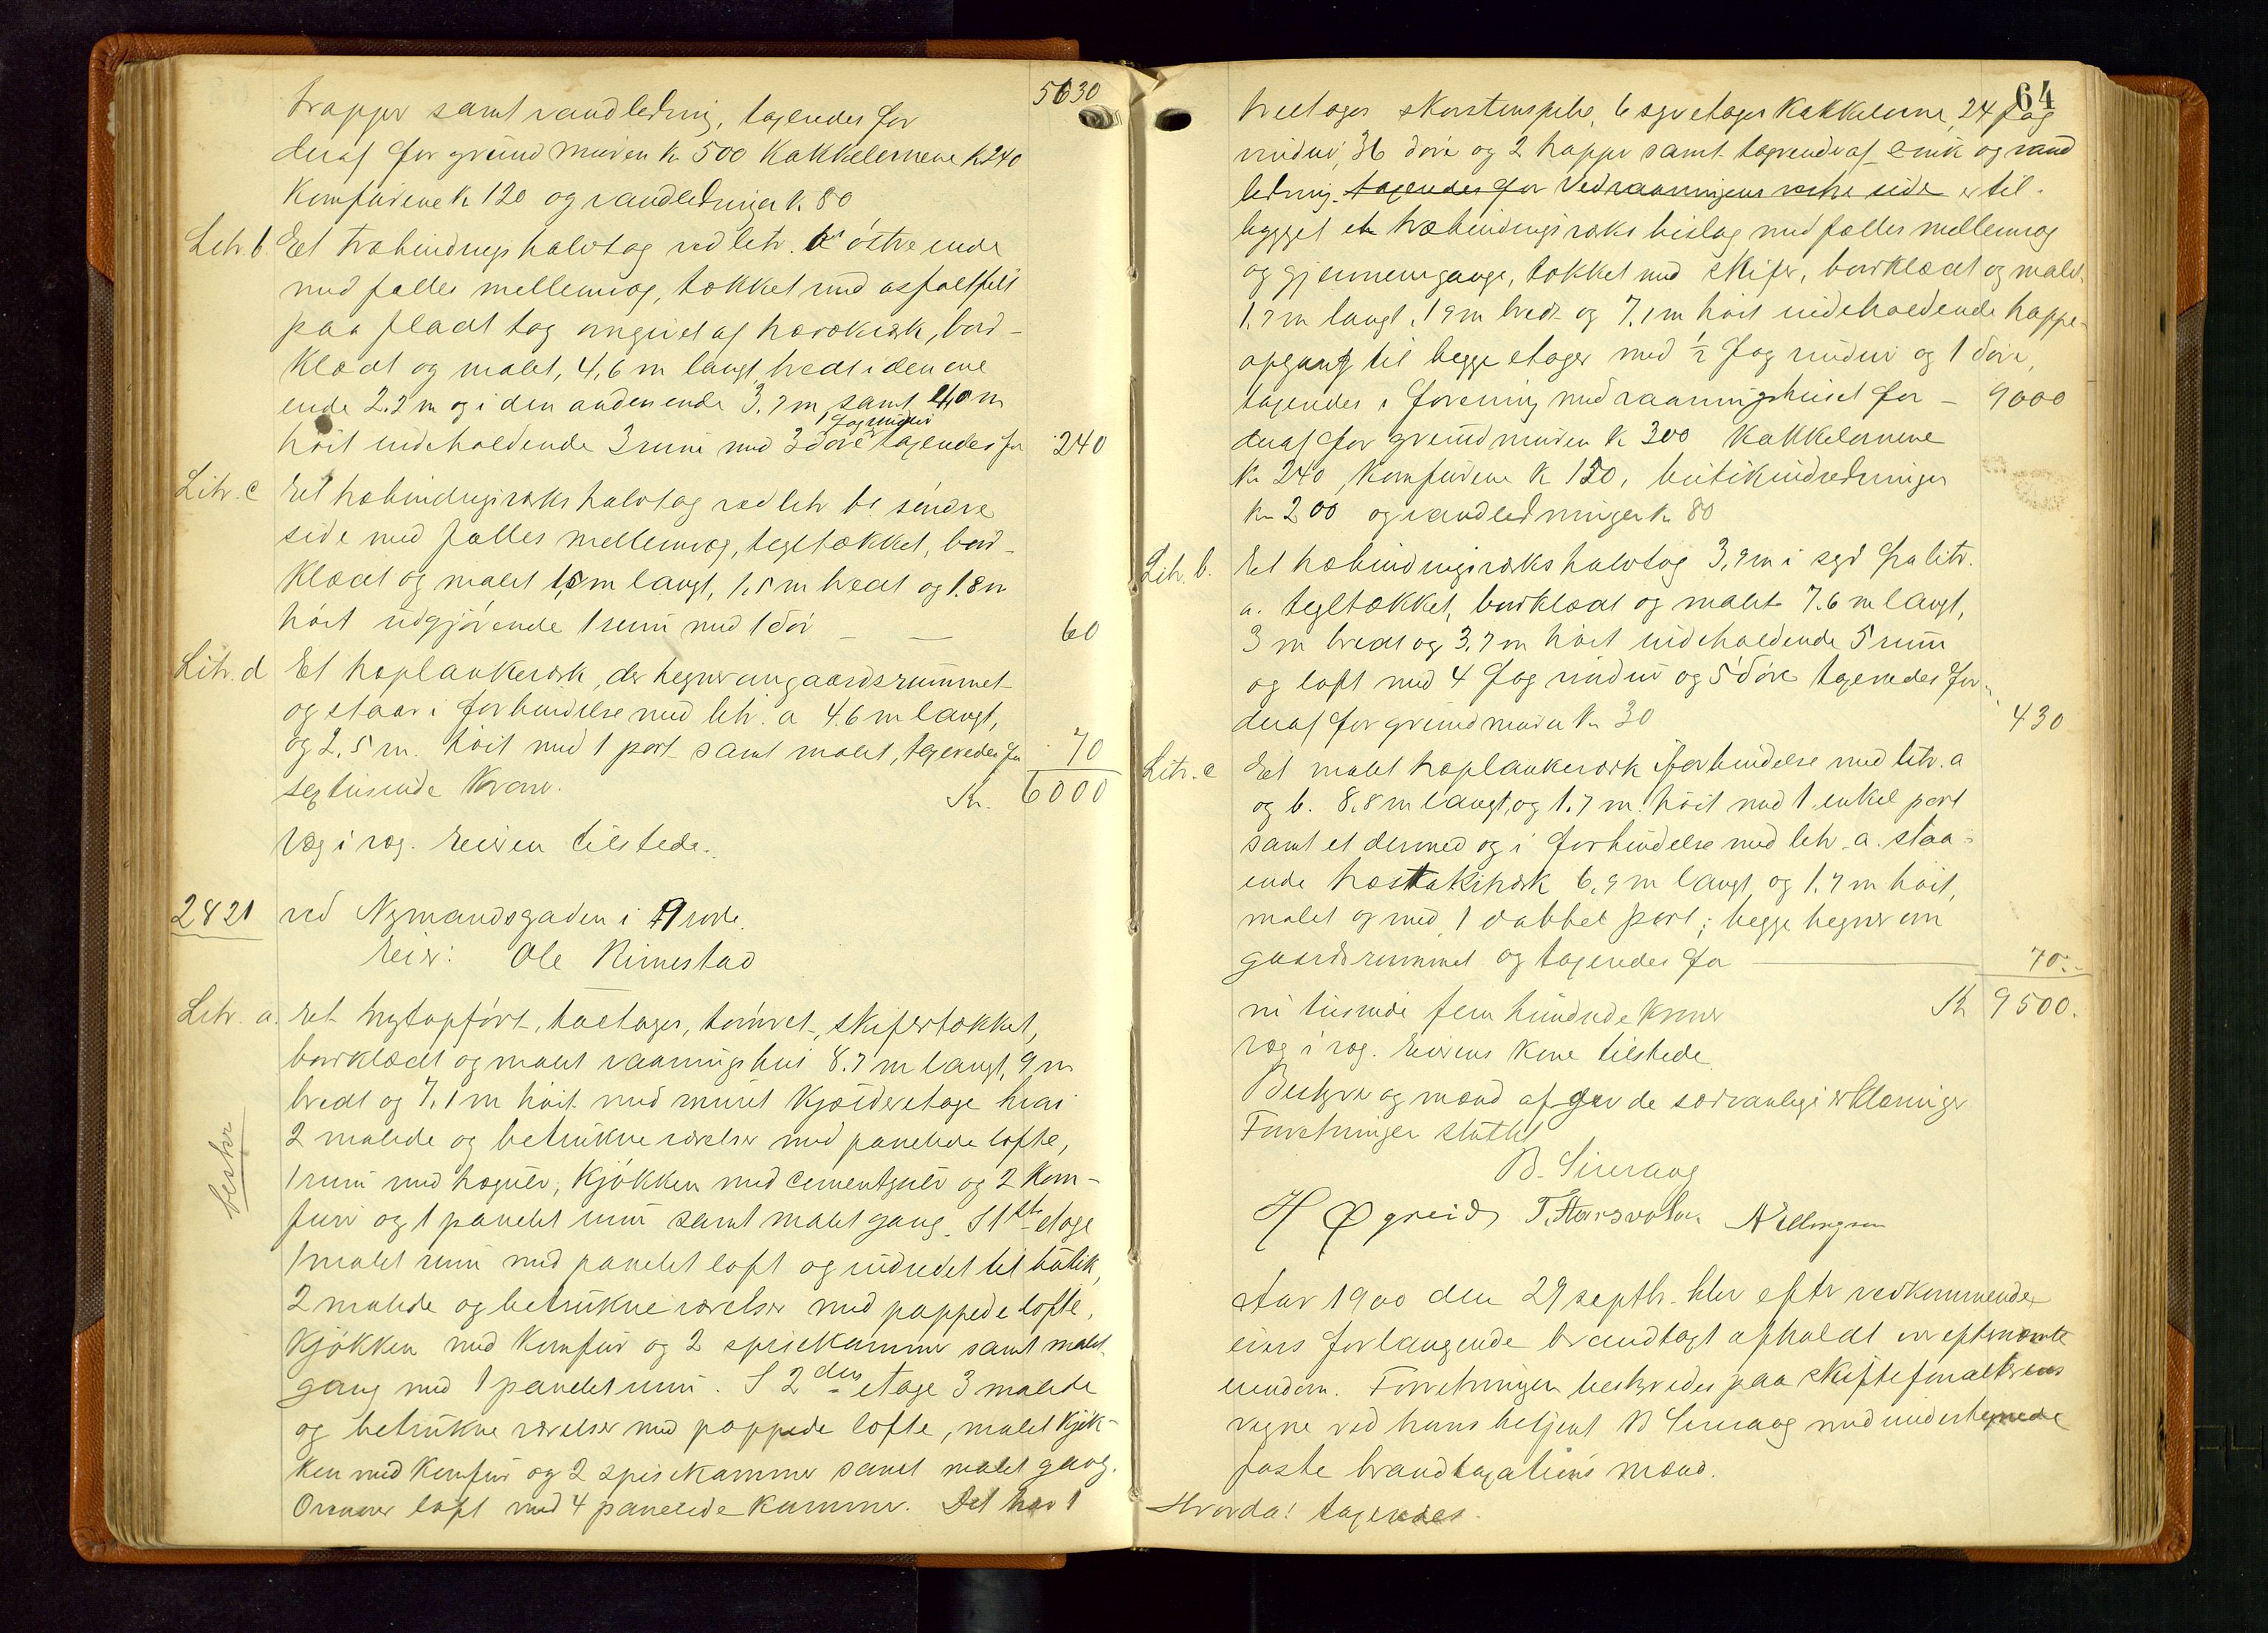 5630
trapper samt vandledning, taxeredes for
deraf for grundmuren kr 500 kakkelovnene kr 240
Komfurene kr 120 og vandledningen kr. 80
Litr. b. Et træbindings halvtag ved litr. a's østre ende
med fælles mellemvæg, tækket med asfaltfilt
paa fladt tag omgivet af træstakit, bord-
klædt og malet, 4,6 m langt, bredt i den ene
ende 2.2 m og i den anden ende 3,7 m samt 4,0 m
1 fag vindu
høit indeholdende 3 rum med 3 døre taxeredes for 240
Litr. c Et træbindingsverks halvtag ved litr b's søndre
side med fælles mellemvæg, tegltækket, bord-
klædt og malet 1,5 m langt, 1,5 m bredt og 1.8 m
høit udgjørende 1 rum med 1 dør — — 60
Litr. d Et træplankeverk, der hegner om gaardsrummet
og staar i forbindelse med litr. a 4.6 m langt,
og 2,5 m. høit med 1 port samt malet, taxeredes for 70
sextusinde Kroner. Kr. 6000
Væg i væg. Eieren tilstede.
2821 ved Nymandsgaden i 9 rode.
Eier: Ole Rimestad
Litr. a. Et nyt opført, toetages, tømret, skifertækket,
bordklædt og malet vaaningshus 8.7 m langt, 9 m
bredt og 7,1 m høit med muret Kjælderetage hvori
beskr
2 malede og betrukne værelser med panelede lofte,
1 rum med trægulv, Kjøkken med cementgulv og 2 Kom-
furer og 1 panelet rum samt malet gang. I 1ste etage
1 malet rum med panelet loft og indredet til butik,
2 malede og betrukne værelser med pappede lofte,
Kjøkken med Komfur og 2 spisekammer samt malet
gang med 1 panelet rum. I 2den etage 3 malede
og betrukne værelser med pappede lofte, malet Kjøk-
ken med Komfur og 2 spisekammer samt malet gang.
Ovenover loft med 4 panelede kammer. Det har 1
64
treetages skorstenspibe, 6 syvetages kakkelovne, 24 fag
vinduer, 36 døre og 2 trapper samt tagrender af zink og vand
ledning. taxeredes for Ved vaaningens vestre side er til-
bygget et træbindingsverks bislag med fælles mellemvæg
og gjennemgange, tækket med skifer, bordklædt og malet.
1,7 m langt, 1 9 m bredt og 7,1 m høit indeholdende trappe-
opgang til begge etager med 1/2 fag vinduer og 1 dør,
taxeredes i forening med vaaningshuset for — 9000
deraf for grundmuren kr 300 kakkelovnene
kr 240, Komfurene kr 150, butikindredningen
kr 200 og vandledningen kr. 80
Litr. b. Et træbindingsverks halvtag 3,9 m i syd fra litr.
a. tegltækket, bordklædt og malet 7.6 m langt,
3 m bredt og 3,7 m høit indeholdende 5 rum
og loft med 4 fag vinduer og 5 døre taxeredes for
deraf for grundmuren kr. 30 430
Litr. c Et malet træplankeverk i forbindelse med litr. a
og b. 8,8 m langt, og 1,7 m. høit med 1 enkel port
samt et dermed og i forbindelse med litr. a. staa-
ende træstakitverk 6,9 m langt, og 1,7 m høit,
malet og med 1 dobbel port; begge hegner om
gaardsrummet og taxeredes for — 70.-
ni tusinde fem hundrede kroner Kr 9500.
Væg i væg. Eierens kone tilstede
Bestyrer og mænd afgav de sædvanlige erklæringer
Forretningen sluttet
B. Sirevaag
H Øgreid T. Haarsvolen. N Ellingsen
Aar 1900 den 29 septbr. blev efter vedkommende
eiers forlangende brandtaxt afholdt over eftermævnte
eiendom. Forretningen bestyredes paa skiftefuldmægtigens
vegne ved hans betjent B Sirevaag med undertegnede
faste brandtaxations mænd.
Hvorda! taxeredes.